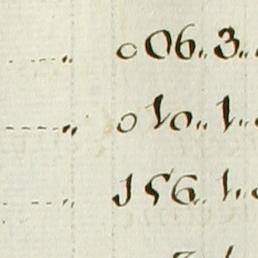 ...." 006.. 3..
----" 010.. 1..
..." 156.. 1..